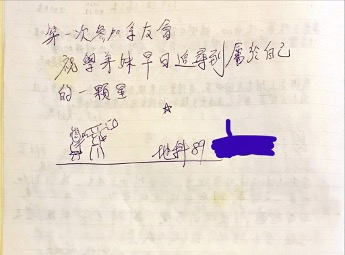 第一次參加系友會
祝學弟妹早日追尋到屬於自己
的一顆星
地科89